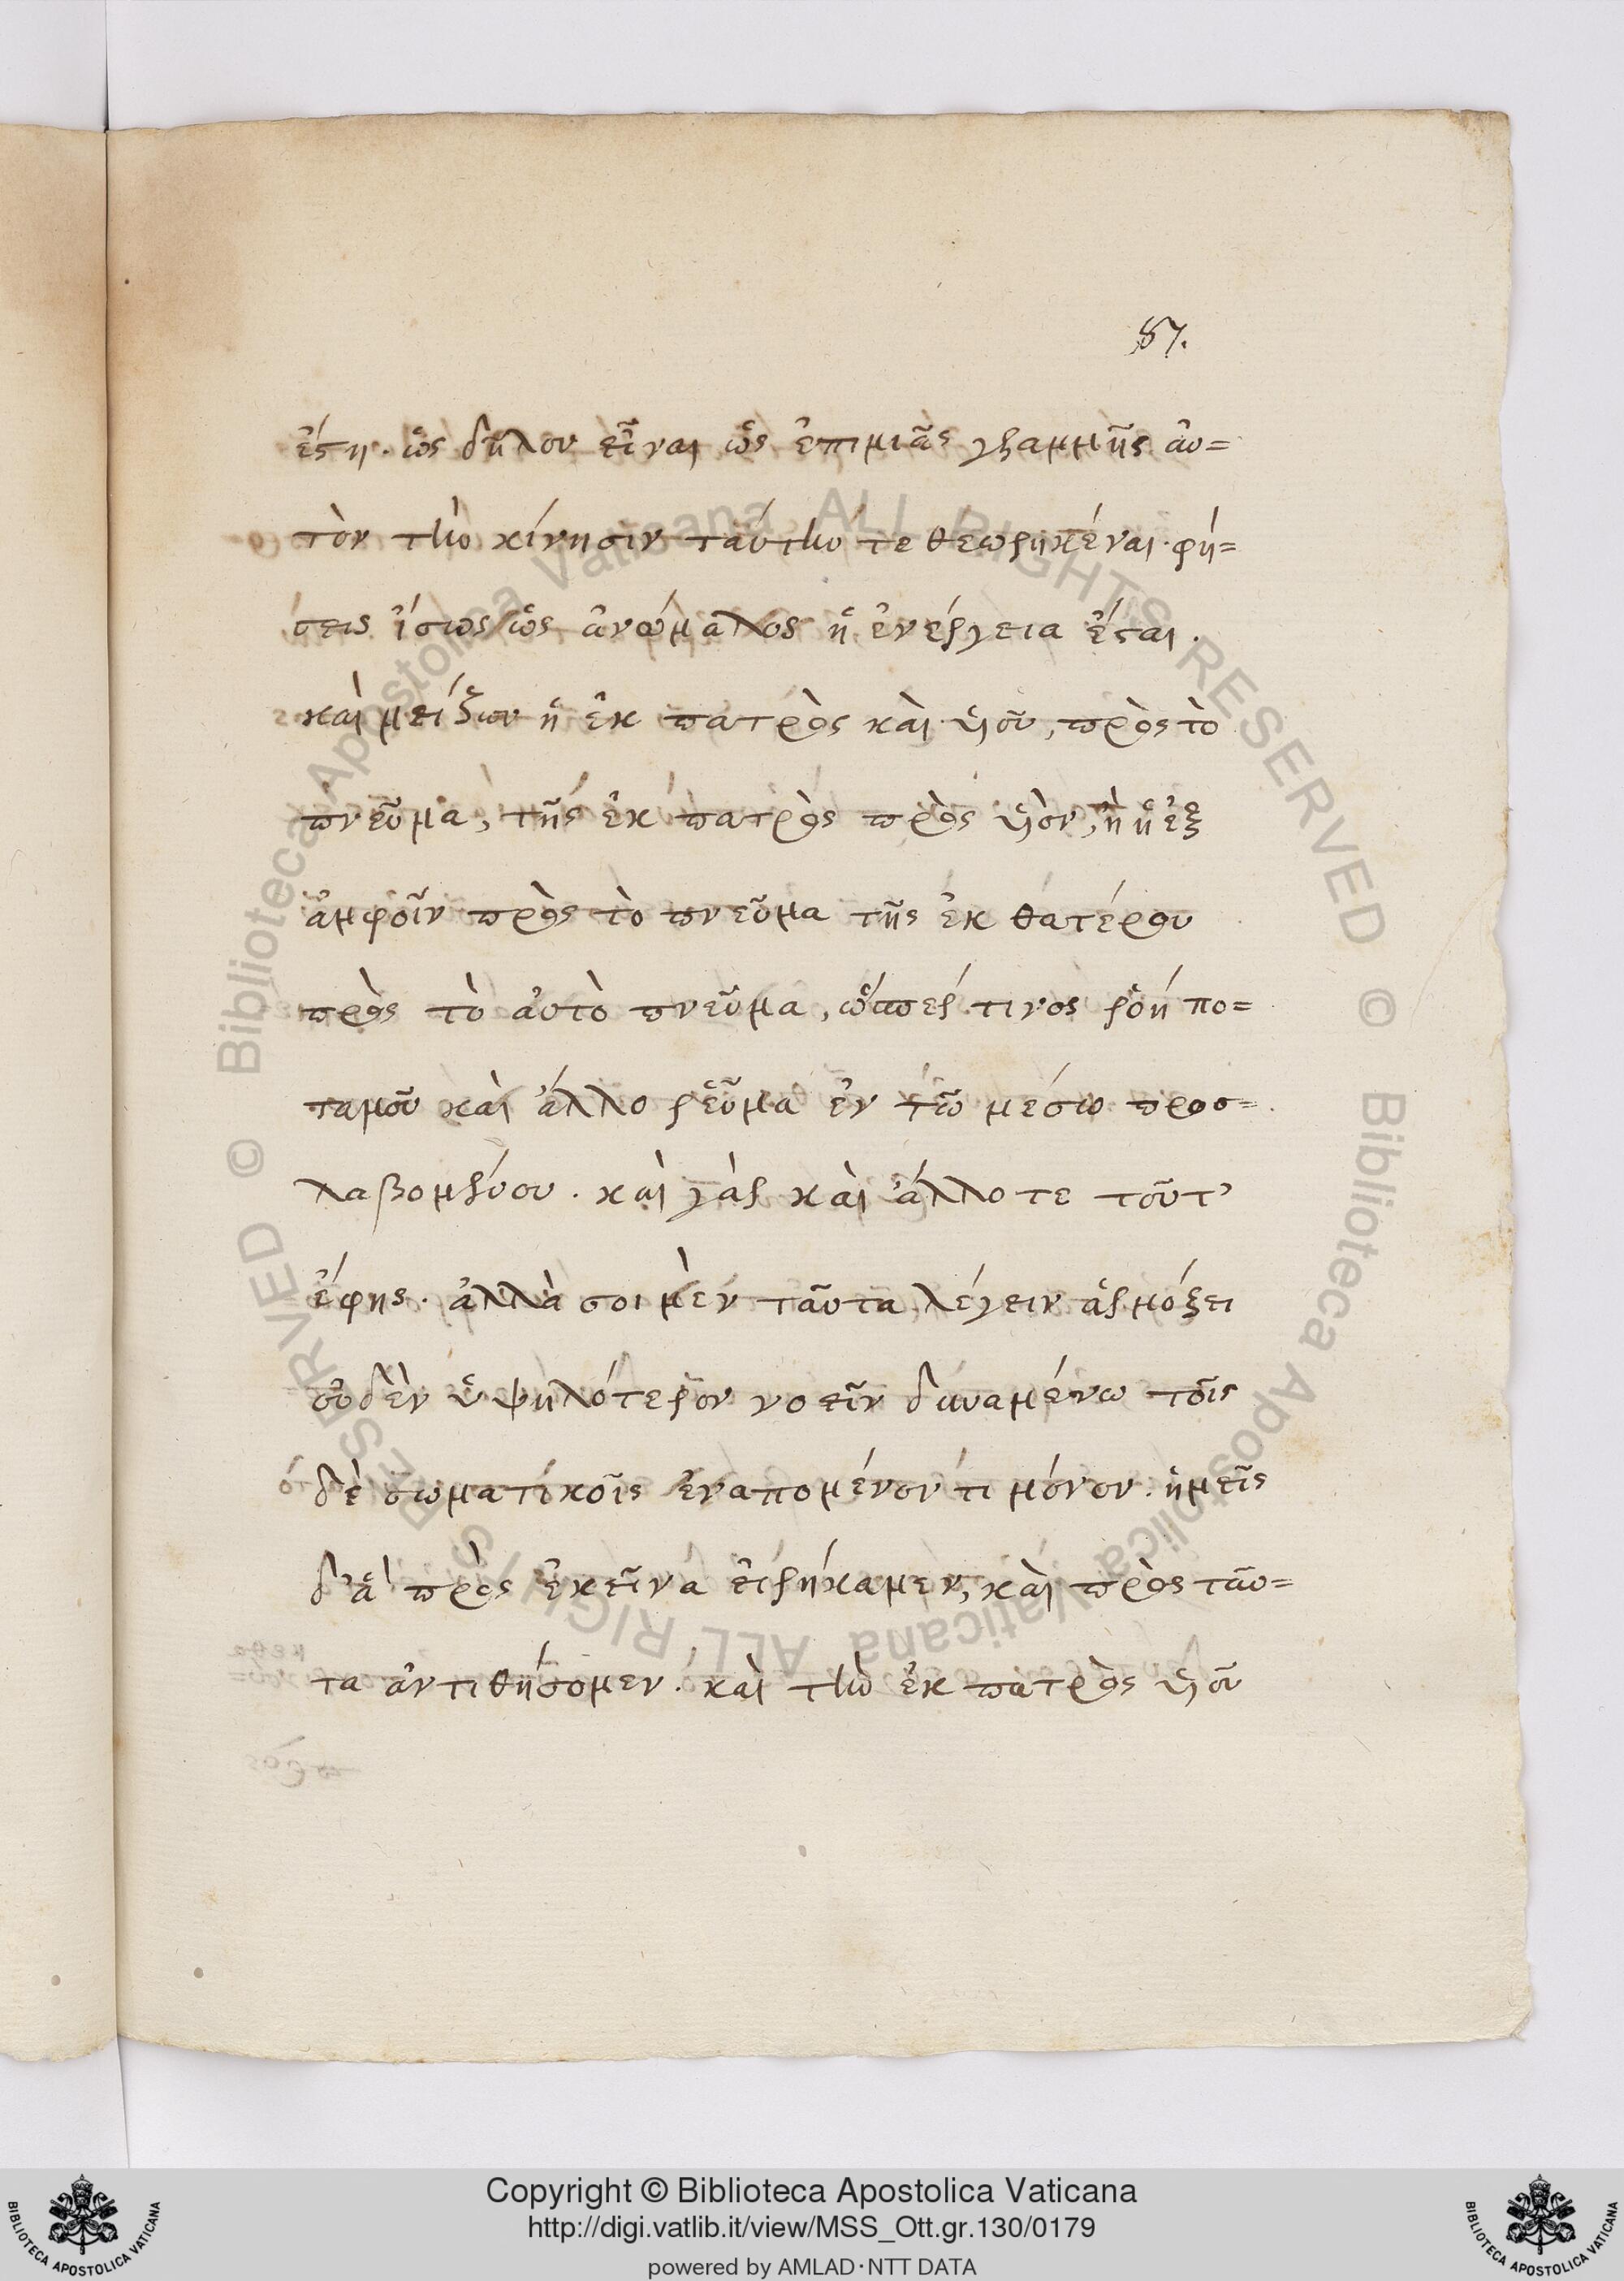 87.
ἔστη. ὡς δῆλον εἶναι ὡς ἐπιμιᾶς γραμμῆς αὐ=
τὸν τὴν κίνησιν ταύτην τεθεωρηκέναι. φή=
σεις ἴσως ὡς ἀνώμαλος ἡ ἐνέργεια ἔσται.
καὶ μείζων ἡ ἐκ πατρὸς καὶ υἱοῦ, πρὸς τὸ
πνεῦμα, τῆς ἐκ πατρὸς πρὸς υἱὸν, ἢ ἡ ἐξ
ἀμφοῖν πρὸς τὸ πνεῦμα τῆς ἐκ θατέρου
πρὸς τὸ αὐτὸ πνεῦμα, ὥσπερ τινος ῥοή πο=
ταμοῦ καὶ ἄλλο ῥεῦμα ἐν τῶ μέσω προσ=
λαβομένου. καὶ γὰρ καὶ ἄλλοτε τοῦτ'
ἔφης. ἀλλὰ σοι μὲν ταῦτα λέγειν ἁρμόξει
οὐδὲν ὑψηλότερον νοεῖν δυναμένω τοῖς
δὲ σωματικοῖς ἐναπομένοντι μόνον. ἡμεῖς
δ' ἃ πρὸς ἐκεῖνα εἰρήκαμεν, καὶ πρὸς ταῦ=
τα ἀντιθήσομεν. καὶ τὴν ἐκ πατρὸς υἱοῦ
Copyright © Biblioteca Apostolica Vaticana
http://digi.vatlib.it/view/MSS_Ott.gr.130/0179
powered by AMLAD·NTT DATA
BIBLIOTECA APOSTOLICA VATICANA
BIBLIOTECA APOSTOLICA VATICANA
© Biblioteca Apostolica Vaticana ALL RIGHTS RESERVED
© Biblioteca Apostolica Vaticana ALL RIGHTS RESERVED